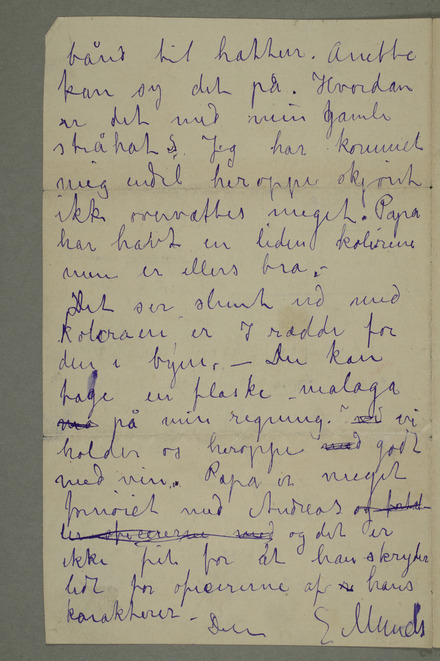 bånd til hatten. Anette
kan sy det på. Hvordan
er det med min gamle
stråhat? Jeg har kommet
mig endel heroppe skjønt
ikke overvættes meget. Papa
har havt en liden kolerine
men er ellers bra.
Det ser slemt ud med
Koleraen er I rædde for
den i byen. – Du kan
tage en flaske malaga
på min regning. vi
holder os heroppe godt
med vin. Papa er meget
fornøiet med Andreas
og det er
ikke frit for at han skryder
lidt for opicererne af hans
karakterer –
Din E Munch